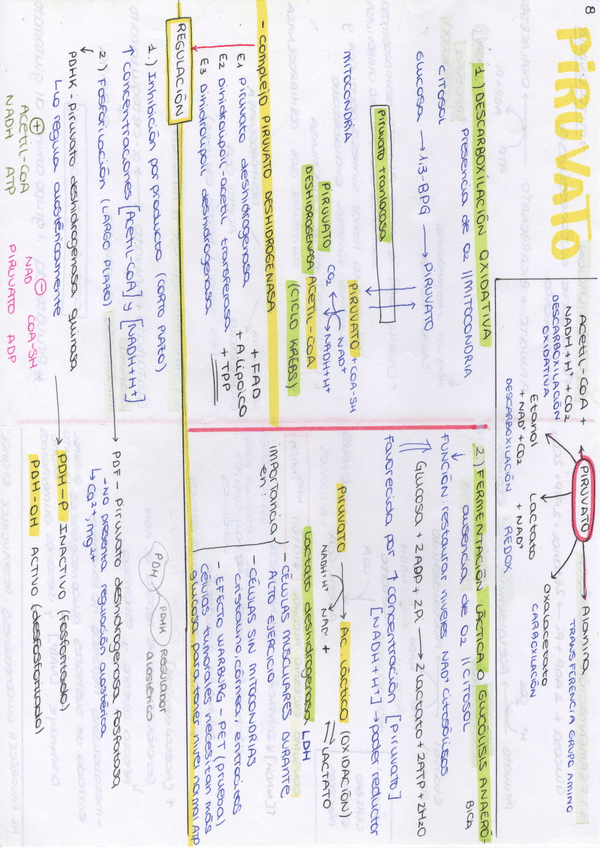 8
PIRUVATO
Acetil-CoA +
NADH+H⁺ + CO2
DESCARBOXILACIÓN
OXIDATIVA
Etanol
+ NAD⁺ + CO2
DESCARBOXILACIÓN
PIRUVATO
Lactato
+ NAD⁺
REDOX
Oxalacetato
CARBOXILACIÓN
Alanina
TRANSFERENCIA GRUPO AMINO
1.) DESCARBOXILACIÓN OXIDATIVA
Presencia de O2 || MITOCONDRIA
CITOSOL
Glucosa → 1,3-BPG → PIRUVATO
Piruvato tranlocasa
MITOCONDRIA
PIRUVATO + COA-SH
PIRUVATO
DESHIDROGENASA
CO2
NAD⁺
NADH+H⁺
ACETIL-COA
(CICLO KREBS)
- COMPLEJO PIRUVATO DESHIDROGENASA
E1 piruvato deshidrogenasa
E2 Dihidrolipoil-acetil transferasa
E3 Dihidrolipoil deshidrogenasa
+ FAD
+ A lipoico
+ TPP
2.) FERMENTACIÓN LÁCTICA O GLUCÓLISIS ANAERÓ-
BICA
ausencia de O2 || CITOSOL
FUNCIÓN restaurar niveles NAD⁺ citosólicos
Glucosa + 2ADP + 2Pi → 2Lactato + 2ATP + 2H2O
favorecida por ↑ concentración [Piruvato]
[NADH+H⁺] → poder reductor
Piruvato → Ac. láctico (OXIDACIÓN)
NADH+H⁺ NAD⁺ + ⇌ LACTATO
Lactato deshidrogenasa LDH
importancia
en:
- CÉLULAS MUSCULARES DURANTE
ALTO EJERCICIO
- CÉLULAS SIN MITOCONDRIAS
cristalino, córnea, eritrocitos
- EFECTO WARBURG - PET (prueba)
células tumorales necesitan más
glucosa para tener nivel normal ATP
REGULACIÓN
1.) Inhibición por producto (CORTO PLAZO)
↑ concentraciones [Acetil-CoA] y [NADH+H⁺]
2.) Fosforilación (LARGO PLAZO) → PDF - Piruvato deshidrogenasa fosfatasa
- No presenta regulación alostérica
↳ Ca²⁺, Mg²⁺
PDH
PDHK Regulador
alostérico
PDHK - piruvato deshidrogenasa quinasa → PDH-P INACTIVO (fosforilado)
↳ se regula alostéricamente
PDH-OH ACTIVO (desfosforilado)
⊕
Acetil-CoA
NADH ATP
⊖
NAD COA-SH
PIRUVATO ADP